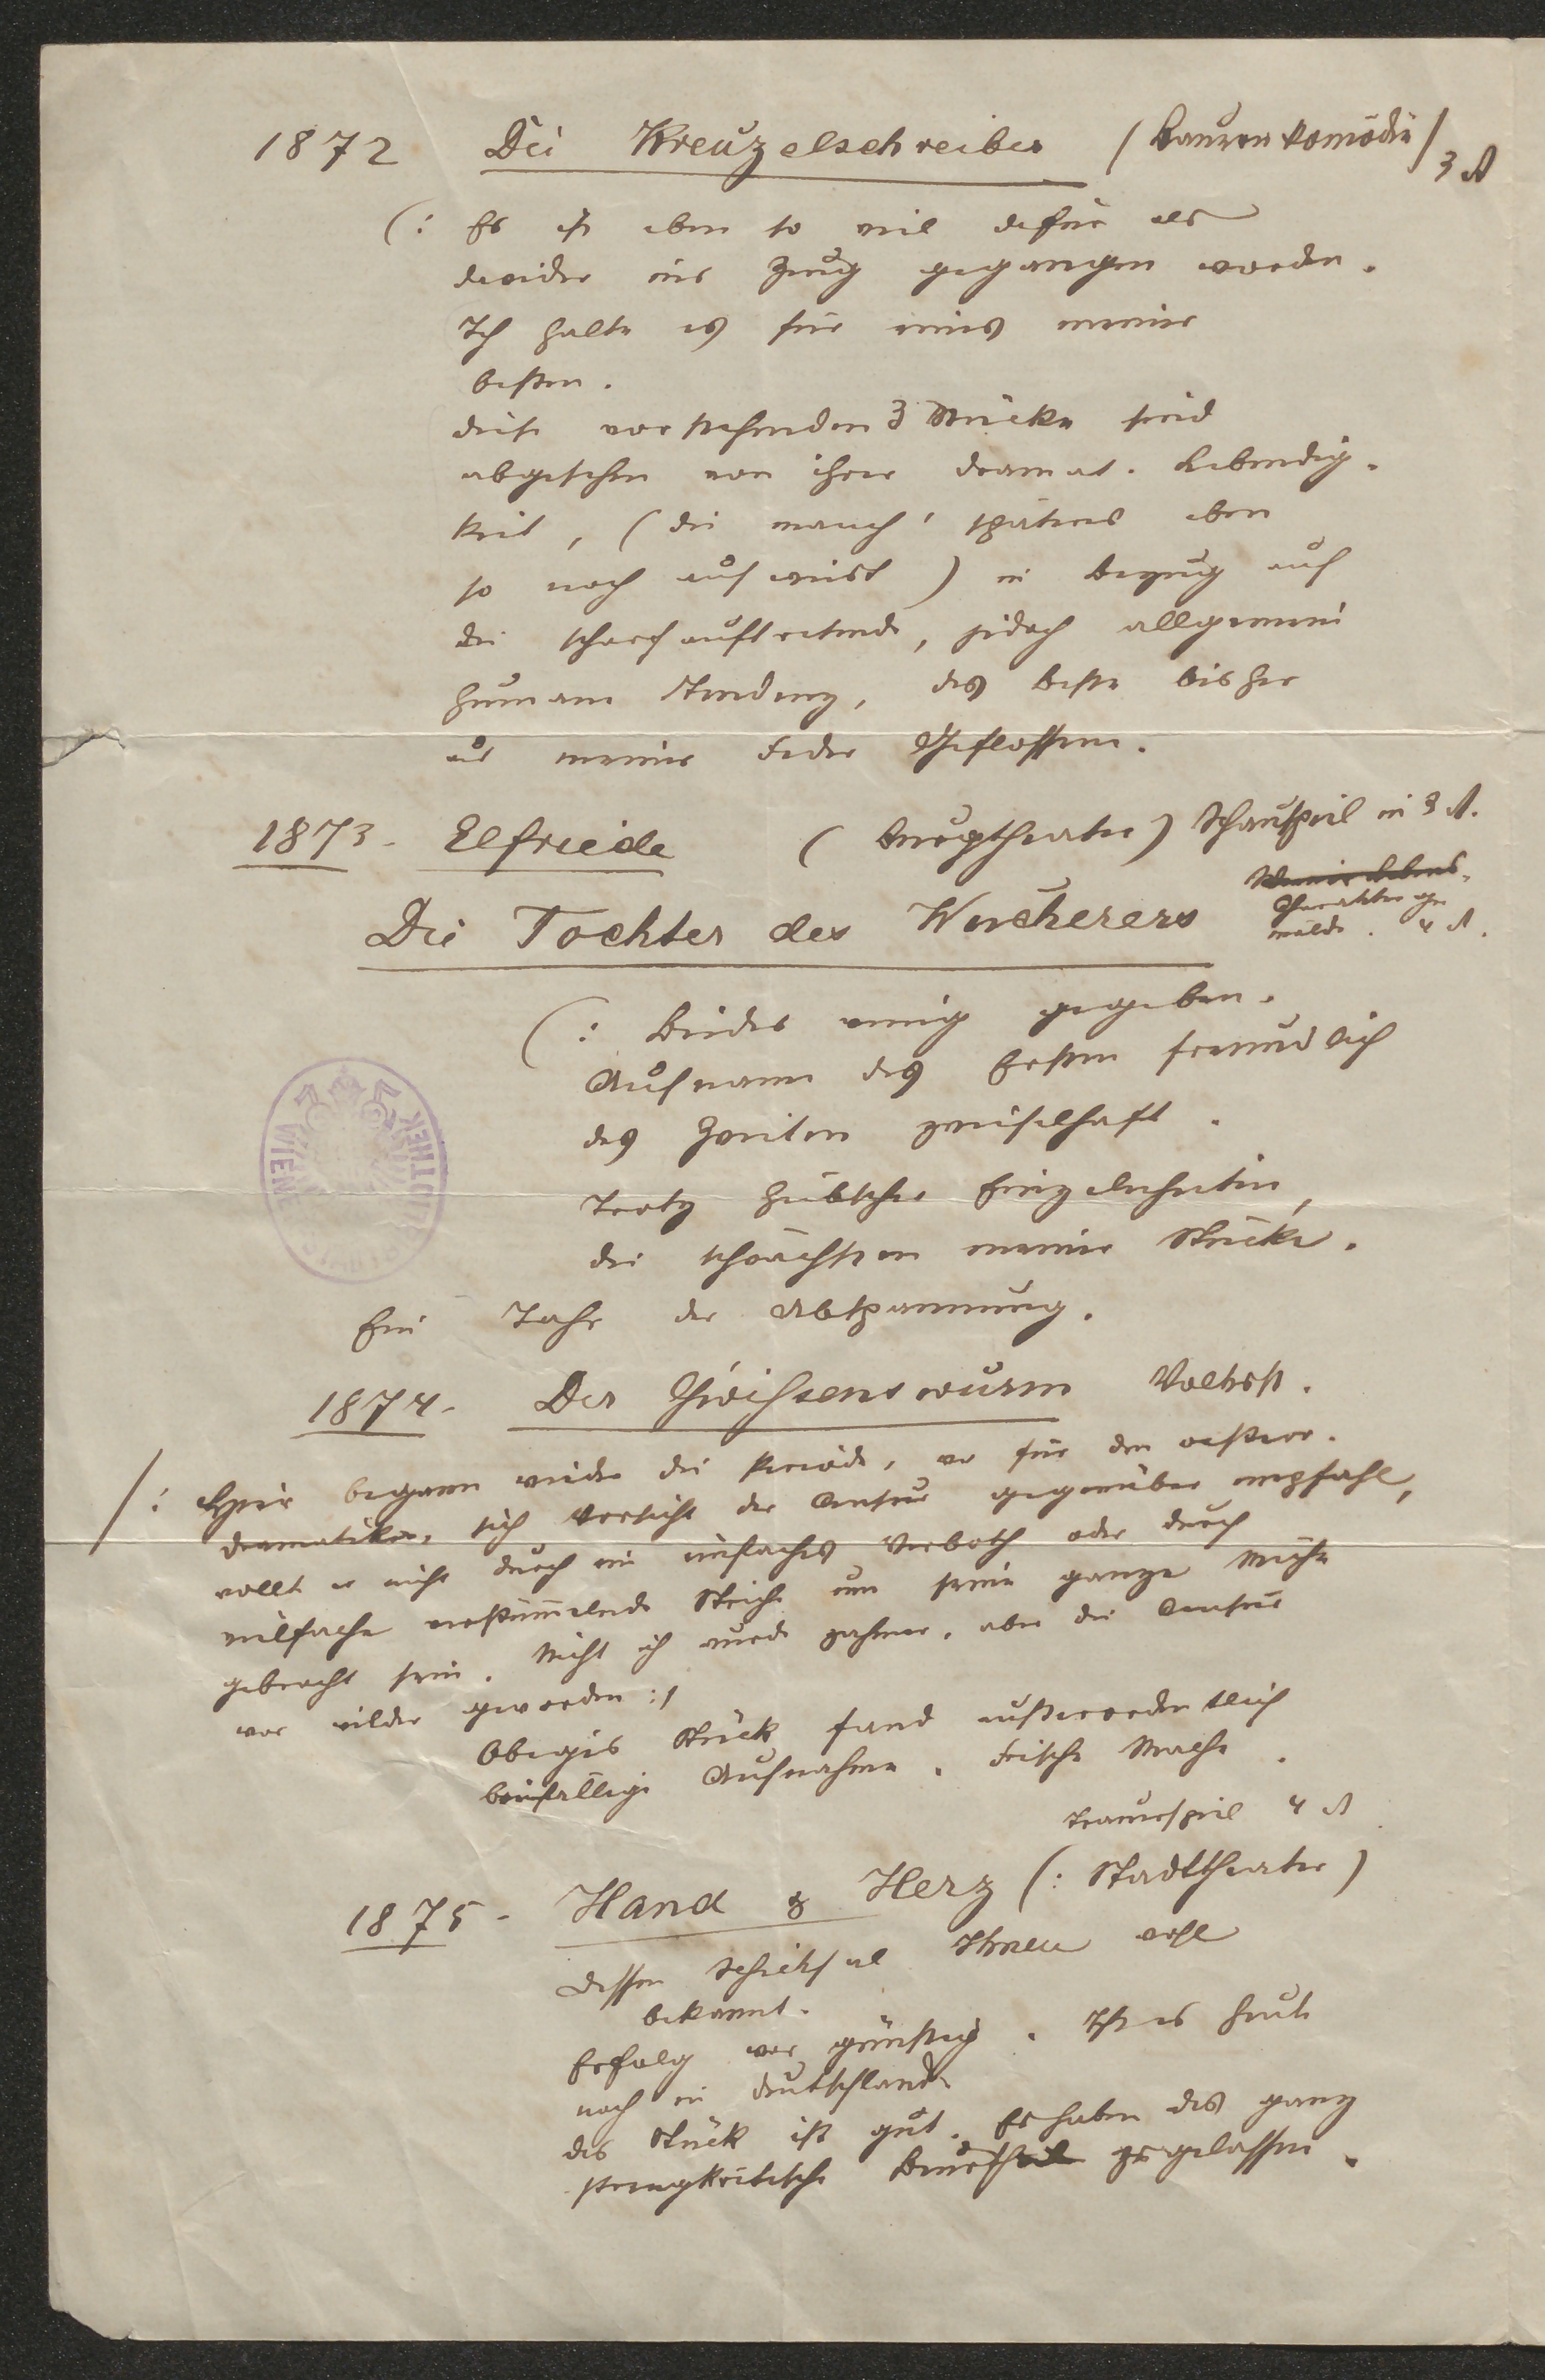 1872 Die Kreuzelschreiber (Bauernkomödie) 3 A
(: Es ist eben so viel dafür als
dawider ins Zeug gegangen worden.
Ich halte es für eines meiner
besten.
diese vorstehenden 3 Stücke sind
abgesehen von ihrer dramat. Lebendig-
keit, (die manch' späteres eben
so noch aufweist) in Bezug auf
die scharf auftretende, jedoch allgemein
humane Tendenz, das beste bisher
aus meiner Feder Geflossene.
1873. Elfriede (Burgtheater) Schauspiel in 3 A.
Die Tochter des Wucherers
Wiener Lebens-
Charakterge
mälde. 4 A.
(: Beides wenig gegeben.
Aufname des Ersten freundlich
des Zweiten zweifelhaft.
Trotz hübscher Einzelnheiten,
die schwächsten meiner Stücke.
Ein Jahr der Abspannung.
1874. Der Gwissenswurm Volksst.
/: Hier begann wieder die Periode, wo für den oesterr.
Dramatiker, sich Vorsicht der Censur gegenüber empfahl,
wollt er nicht durch ein einfaches Verboth oder durch
vielfache verstümmelnde Striche um seine ganze Mühe
gebracht sein. Nicht ich wurde zahmer, aber die Censur
war wilder geworden :/
Obiges Stück fand außerordentlich
beifällige Aufnahme. Frische Mache.
Trauerspiel 4 A
1875. Hand & Herz (: Stadttheater)
Dessen Schicksal Ihnen wohl
bekannt.
Erfolg war günstig. Ist es heute
noch in Deutschland.
das Stück ist gut. Es haben das ganz
strengkritische zugelassen.
WIEN